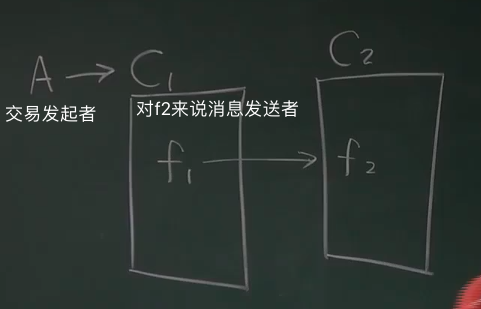 C₂
A → C₁
交易发起者
对f2来说消息发送者
f₁ → f₂